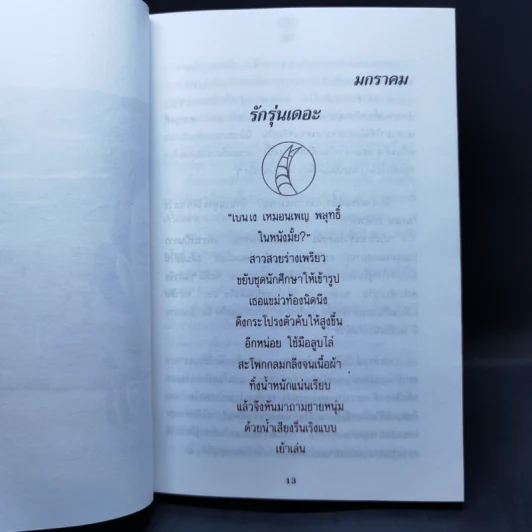 มกราคม
รักรุ่นเดอะ
"เบนเง เหมือนเพ็ญ พลุทธิ์
ในหนังมั้ย?"
สาวสวยร่างเพรียว
ขยับชุดนักศึกษาให้เข้ารูป
เธอแขม่วท้องนิดนึง
ดึงกระโปรงตัวคับให้สูงขึ้น
อีกหน่อย ใช้มือลูบไล่
สะโพกกลมกลึงจนเนื้อผ้า
ทิ้งน้ำหนักแน่นเรียบ
แล้วจึงหันมาถามชายหนุ่ม
ด้วยน้ำเสียงรื่นเริงแบบ
เย้าเล่น
13